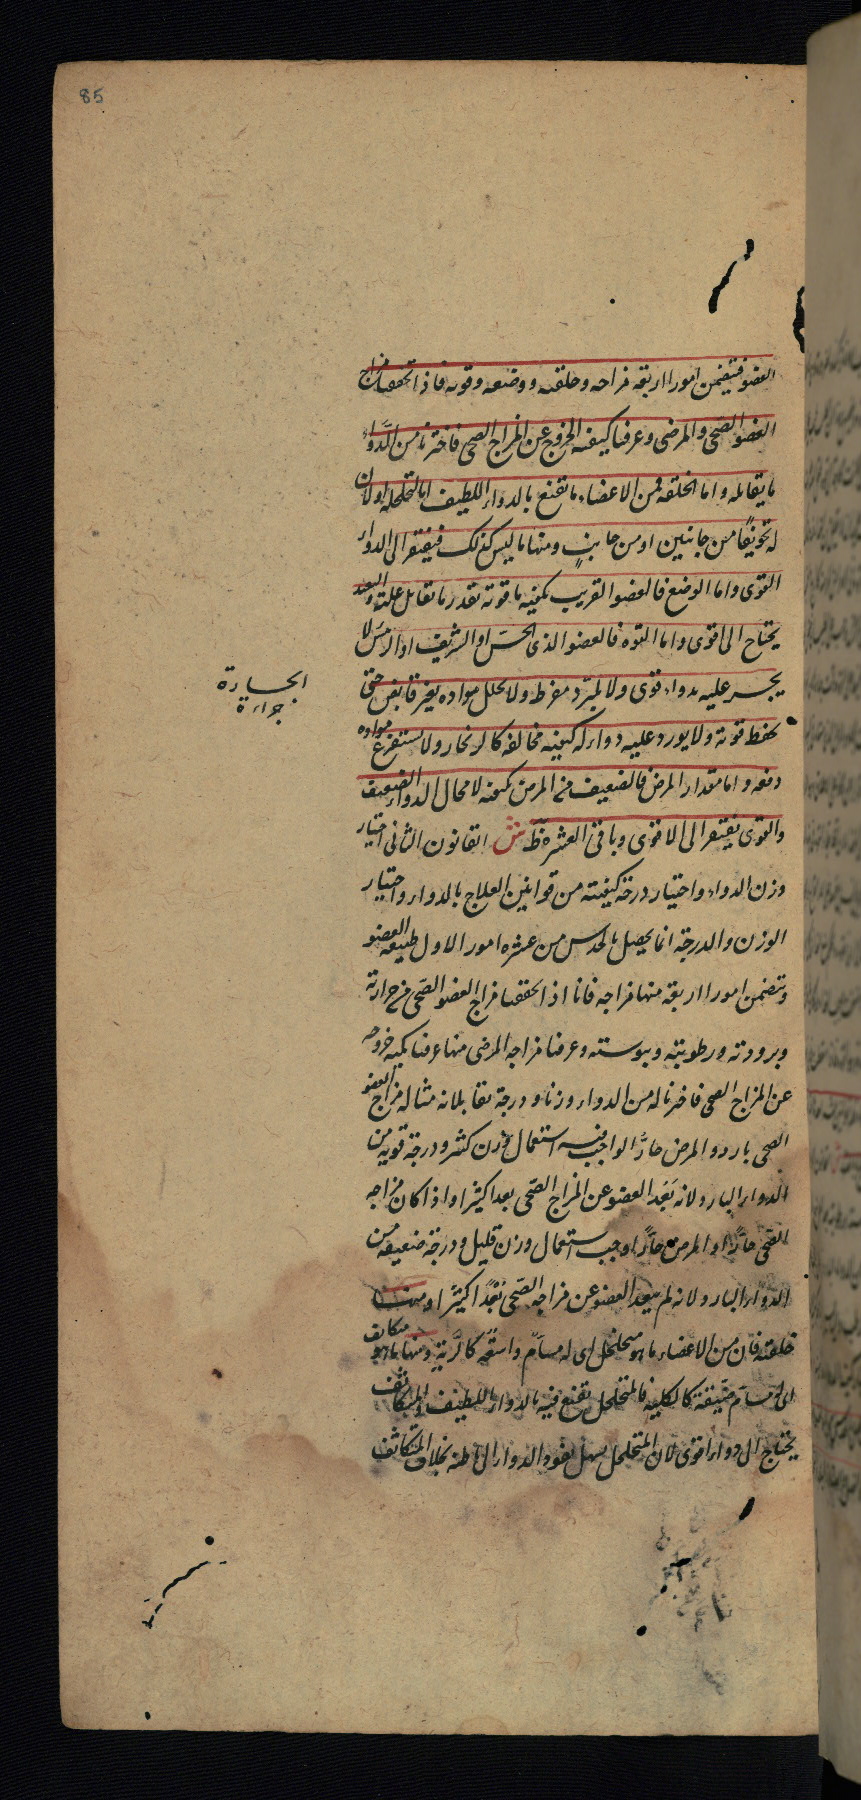 85
العضو فتيضمن امورا اربعة مزاجه وخلقته ووضعه وقوته فاذا تحققنا مزاج
العضو الصحى والمرضى وعرفنا كيفية الخروج عن المزاج الصحى فاخترنا من الدواء
ما يقابله واما الخلقة فمن الاعضاء ما تقنع بالدواء اللطيف اما لتخلخله او لان
له تجويفا من جانبين او من جانب ومنها ما ليس كذلك فيفتقر الى الدواء
القوى واما الوضع فالعضو القريب يكفيه ما قوته بقدر ما تقابل علته والبعيد
يحتاج الى اقوى واما القوة فالعضو الذكى الحس او الشريف او الرئيس لا
يجسر عليه بدواء قوى ولا لمبرد مفرط ولا يحلل مواده بغير قابض حتى
الجسارة
جراءة
يحفظ قوته ولا يورد عليه دواء له كيفية مخالفة كالزنجار ولا يستفرغ مواده
دفعة واما مقدار المرض فالضعيف من المرض يكفيه لا محال الدواء الضعيف
والقوى يفتقر الى الاقوى وباقى العشرة ظ ش القانون الثانى اختيار
وزن الدواء واختيار درجة كيفيته من قوانين العلاج بالدواء واختيار
الوزن والدرجة انما يحصل بالحدس من عشرة امور الاول طبيعة العضو
وتتضمن امورا اربعة منها مزاجه فانا اذا تحققنا مزاج العضو الصحى من حرارته
وبرودته ورطوبته ويبوسته وعرفنا مزاجه المرضى منها عرفنا كمية خروجه
عن المزاج الصحى فاخترنا له من الدواء وزنا ودرجة يقابلانه مثاله مزاج العضو
الصحى بارد والمرض حارا الواجب فيه استعمال وزن كثير ودرجة قوية من
الدواء البارد لانه بَعُد العضو عن المزاج الصحى بعدا كثيرا واذا كان مزاجه
الصحى حارا والمرض حارا وجب استعمال وزن قليل ودرجة ضعيفة من
الدواء البارد لانه لم يبعد العضو عن مزاجه الصحى بُعدا كثيرا ومنها
خلقته فان من الاعضاء ما هو متخلخل اى له مسام واسعة كالرية ومنها ما هو متكاثف
اى له مسام ضيقة كالكلية فالمتخلخل تقنع فيه بالدواء اللطيف والمتكاثف
يحتاج الى دواء اقوى لان المتخلخل يسهل نفوذ الدواء الى باطنه بخلاف المتكاثف